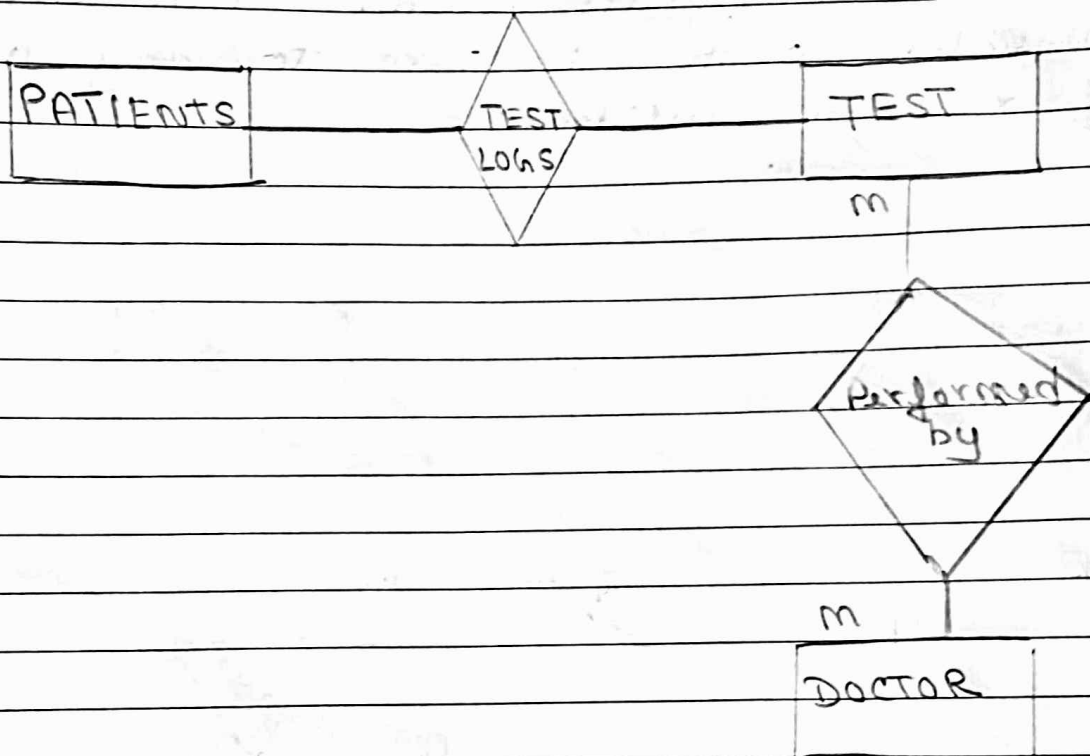 PATIENTS
TEST
LOGS
TEST
m
Performed
by
m
DOCTOR